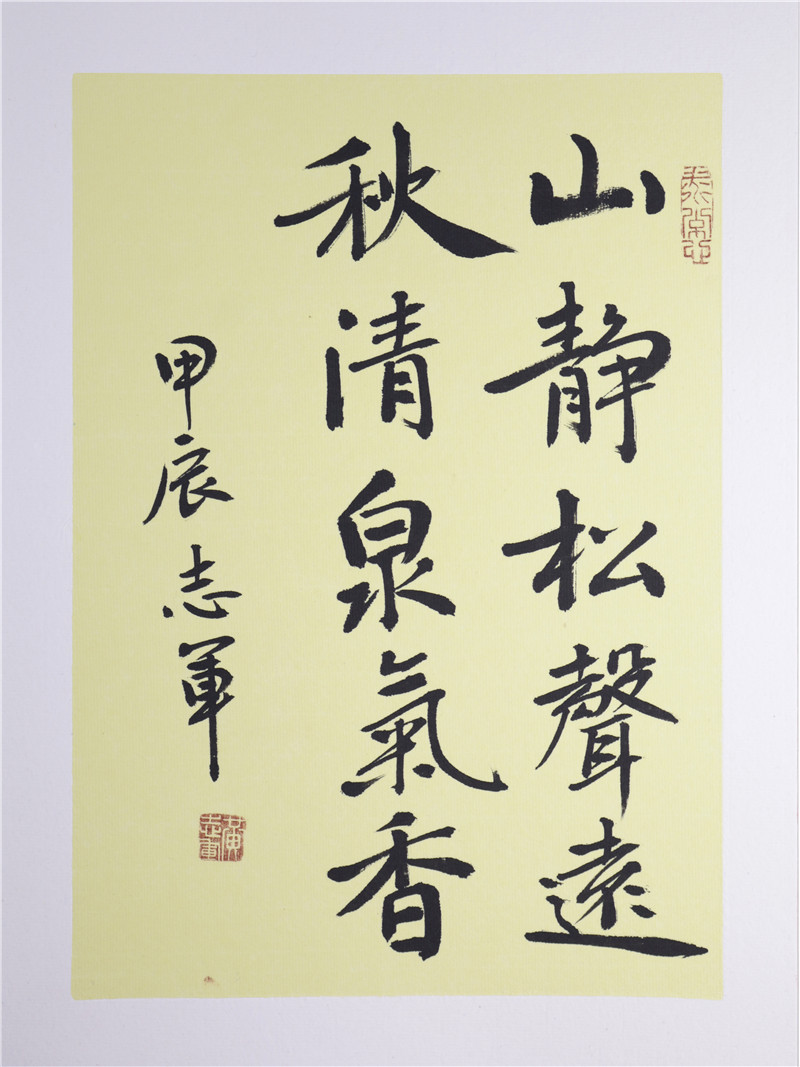 山静松聲遠
秋清泉氣香
甲辰志軍